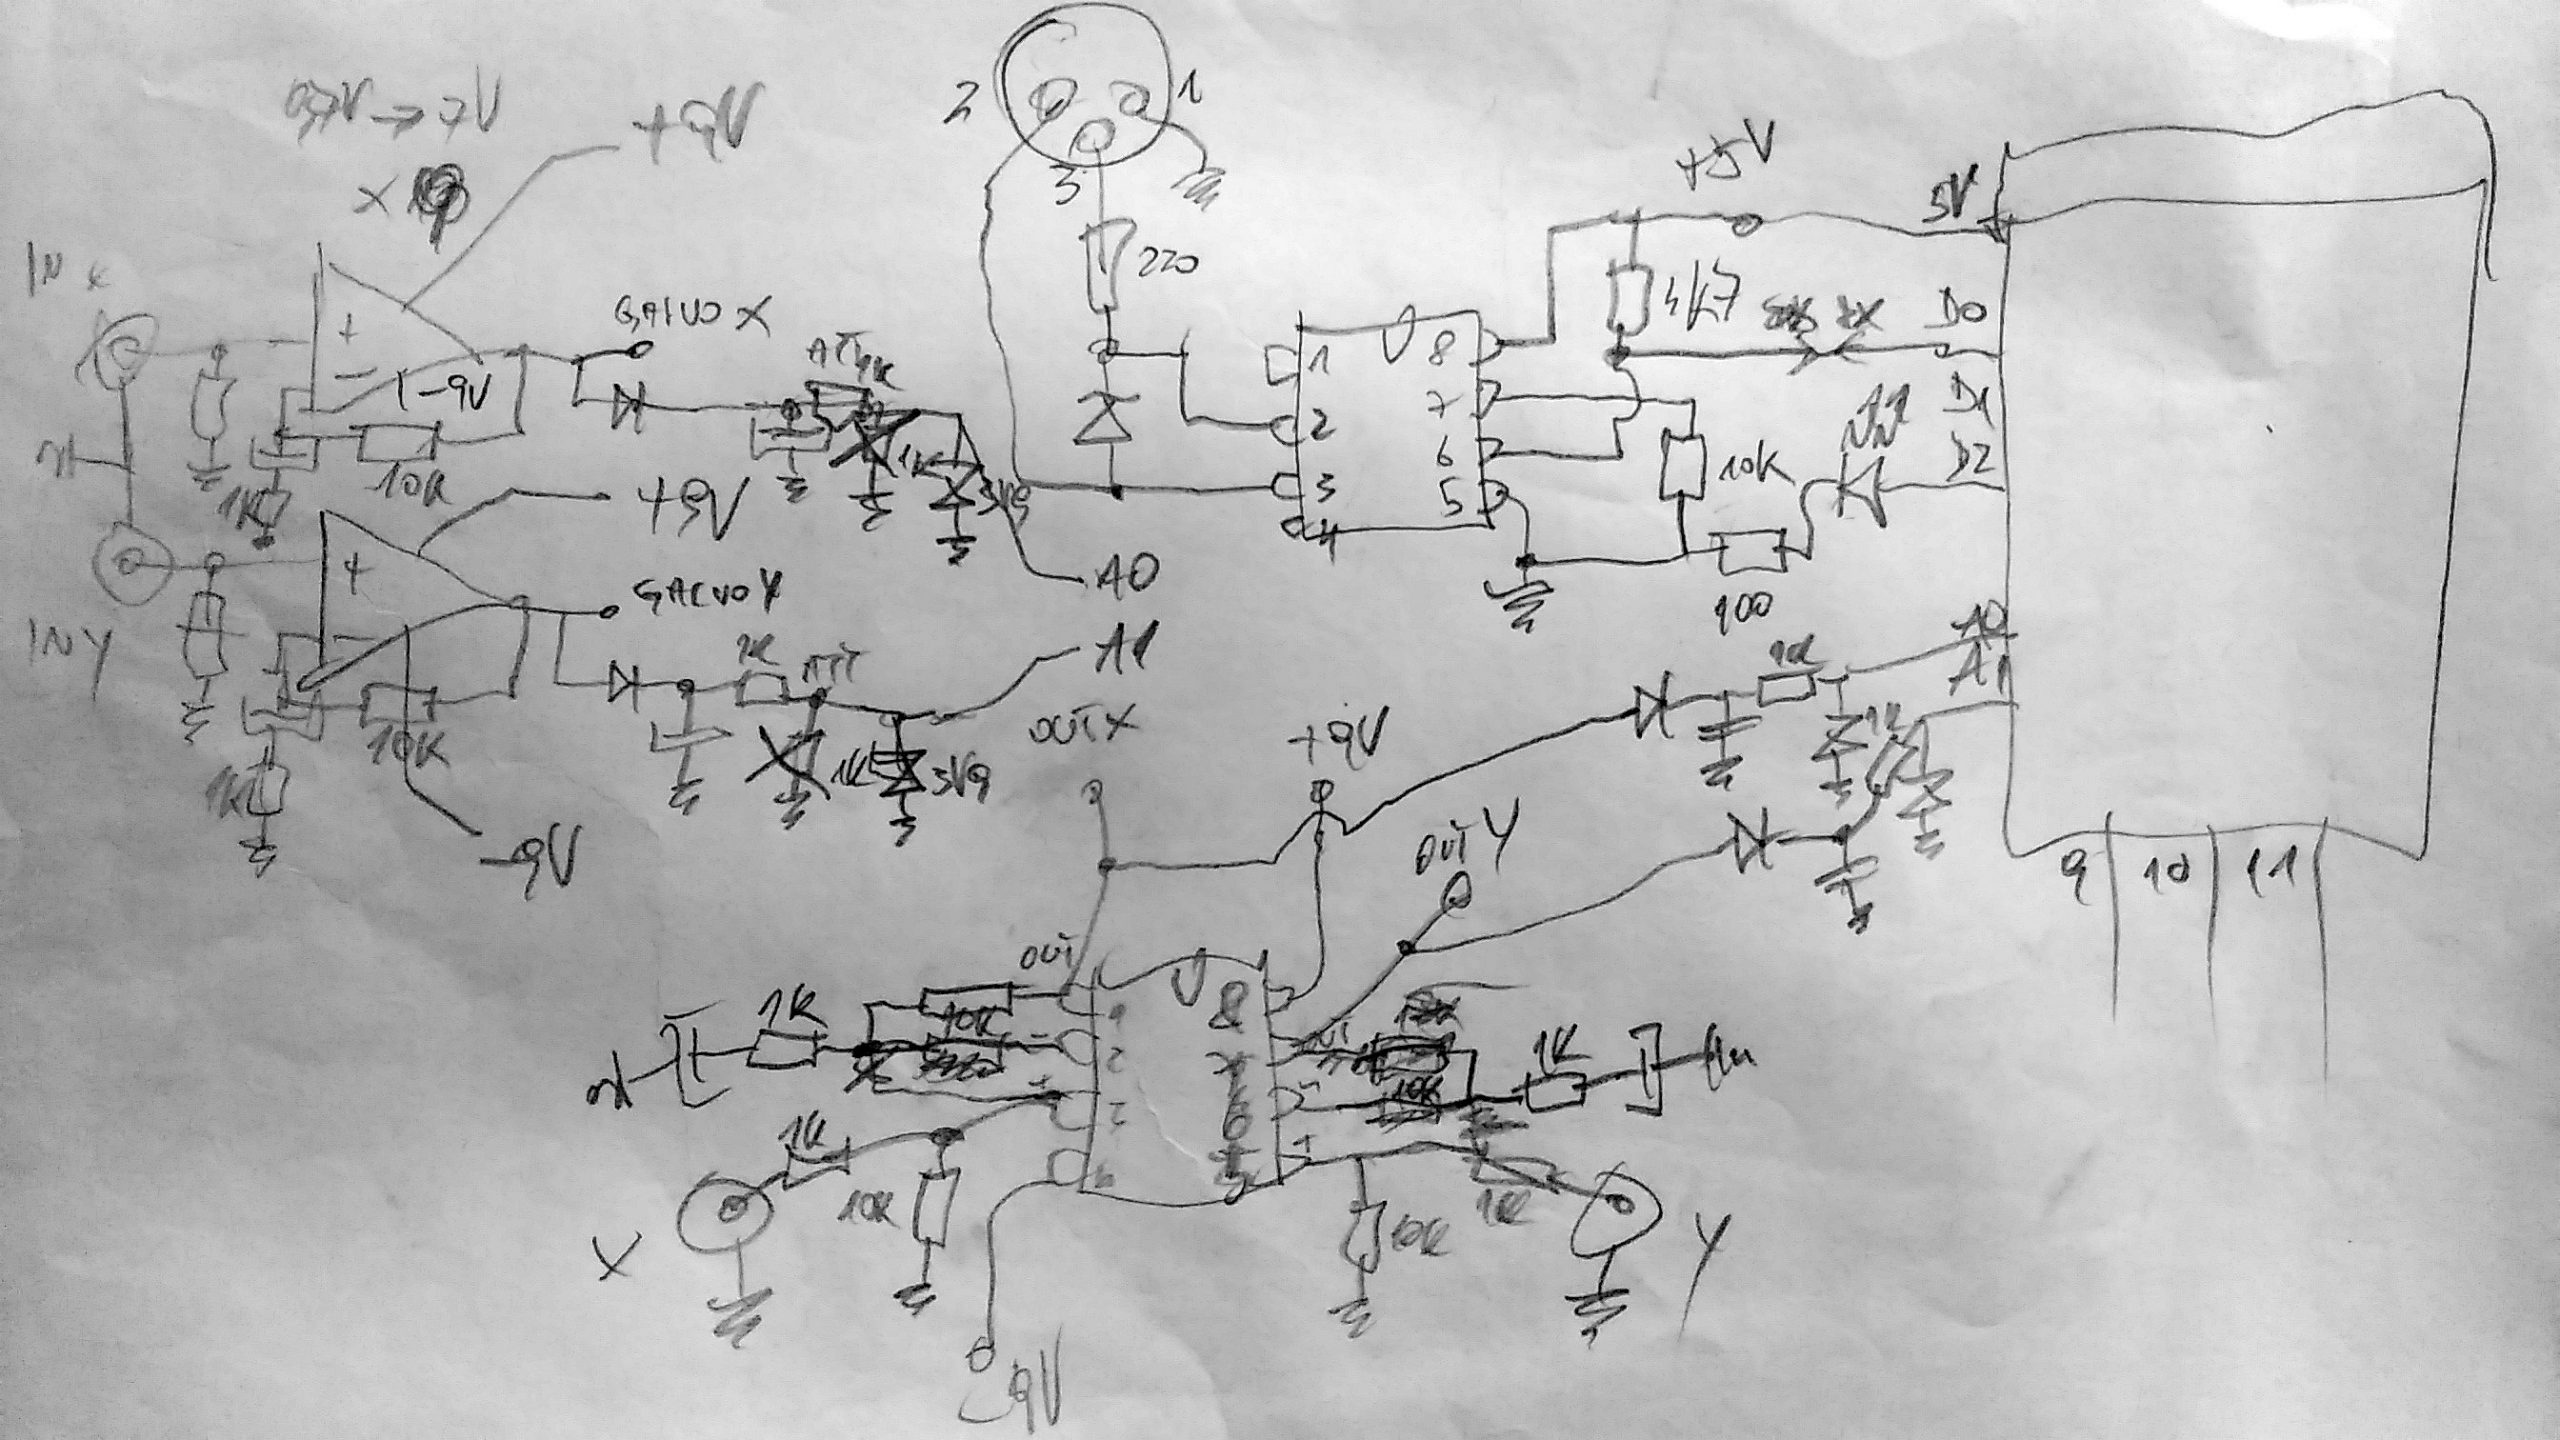 0,7V → 7V
+9V
x
IN X
+
-
-9V
10K
1K
GALVO X
ATT
1K
1K
3V9
A0
+9V
IN Y
+
-
10K
1K
-9V
GALVO Y
1K
ATT
1K
3V9
A1
2
1
3
220
1
2
3
4
8
7
6
5
+5V
4K7
10K
100
5V
D0
D1
D2
A0
A1
1K
1K
9
10
11
OUT X
+9V
OUT Y
OUT
1K
10K
1
2
8
7
6
5
OUT
-
+
-
+
10K
1K
1K
10K
X
10K
1K
Y
-9V